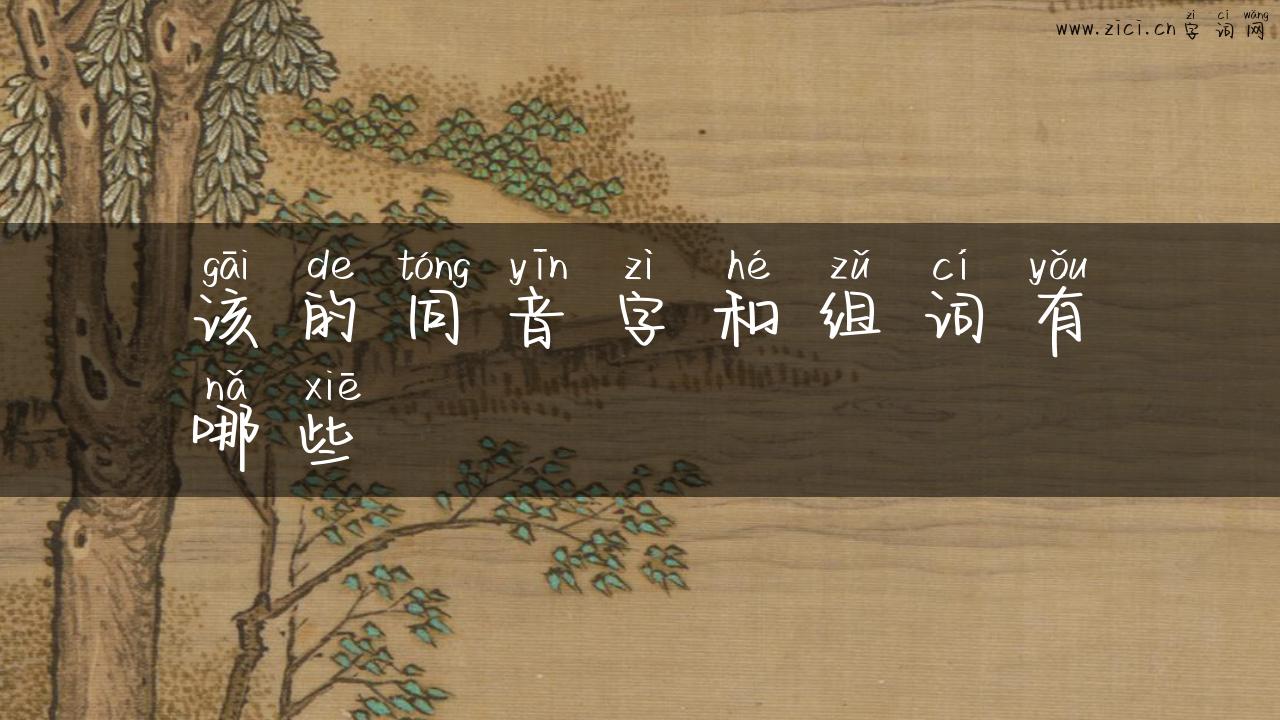 zì cí wǎng
www.zici.cn 字词网
gāi de tóng yīn zì hé zǔ cí yǒu
该的同音字和组词有
nǎ xiē
哪些